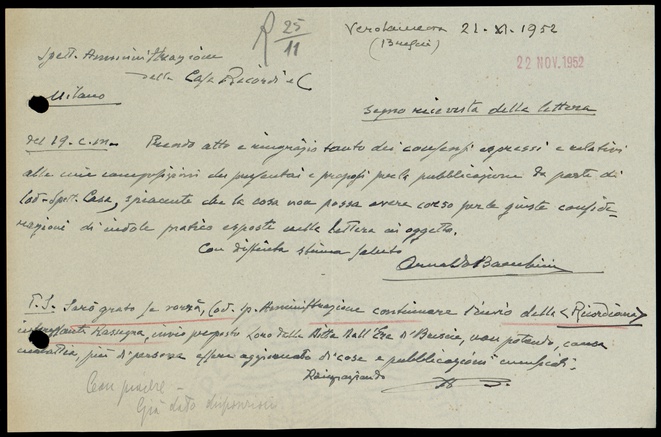 R 25/11
Verolanuova 21. XI. 1952
(Brescia)
22 NOV. 1952
Spett. Amministrazione
della Casa Ricordi e C
Milano
Segno ricevuta della lettera
del 19. c.m. Prendo atto e ringrazio tanto dei consensi espressi e relativi
alle mie composizioni che presentai e proposi per la pubblicazione da parte di
Cod. Spett. Casa, spiacente che la cosa non possa avere corso per le giuste conside-
razioni di indole pratico esposte nella lettera in oggetto.
Con distinta stima saluto
Arnaldo Bambini
P.S. Sarò grato se vorrà, Cod. sp. Amministrazione continuare l'invio della "Ricordiana"
interessante Rassegna, invio proposto Loro dalla Ditta Dall'Era d'Brescia, non potendo, causa
malattia, più d'persona essere aggiornato di cose e pubblicazioni musicali.
Ringraziando
Con piacere -
Già dato disposizioni